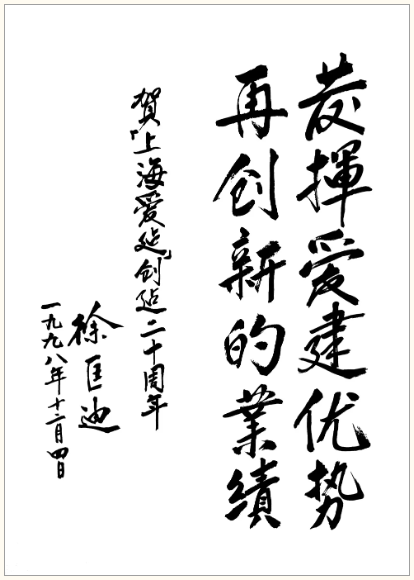 发揮爱建优势
再创新的業績
賀「上海爱建」创建二十周年
徐匡迪
一九九八年十二月四日